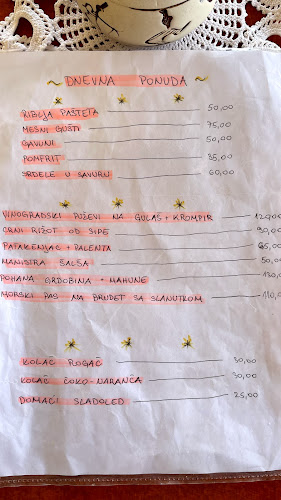 ~ DNEVNA PONUDA ~
RIBLJA PAŠTETA 50,00
MESNI GUŠTI 75,00
GAVUNI 50,00
POMFRIT 35,00
SRDELE U SAVURU 60,00
VINOGRADSKI PUŽEVI NA GULAŠ + KROMPIR 120,00
CRNI RIŽOT OD SIPE 90,00
PATAKENJAC + PALENTA 65,00
MANISTRA ŠALŠA 50,00
POHANA GRDOBINA + MAHUNE 130,0
MORSKI PAS NA BRUDET SA SLANUTKOM 110,0
KOLAČ ROGAČ 30,00
KOLAČ ČOKO-NARANČA 30,00
DOMAĆI SLADOLED 25,00